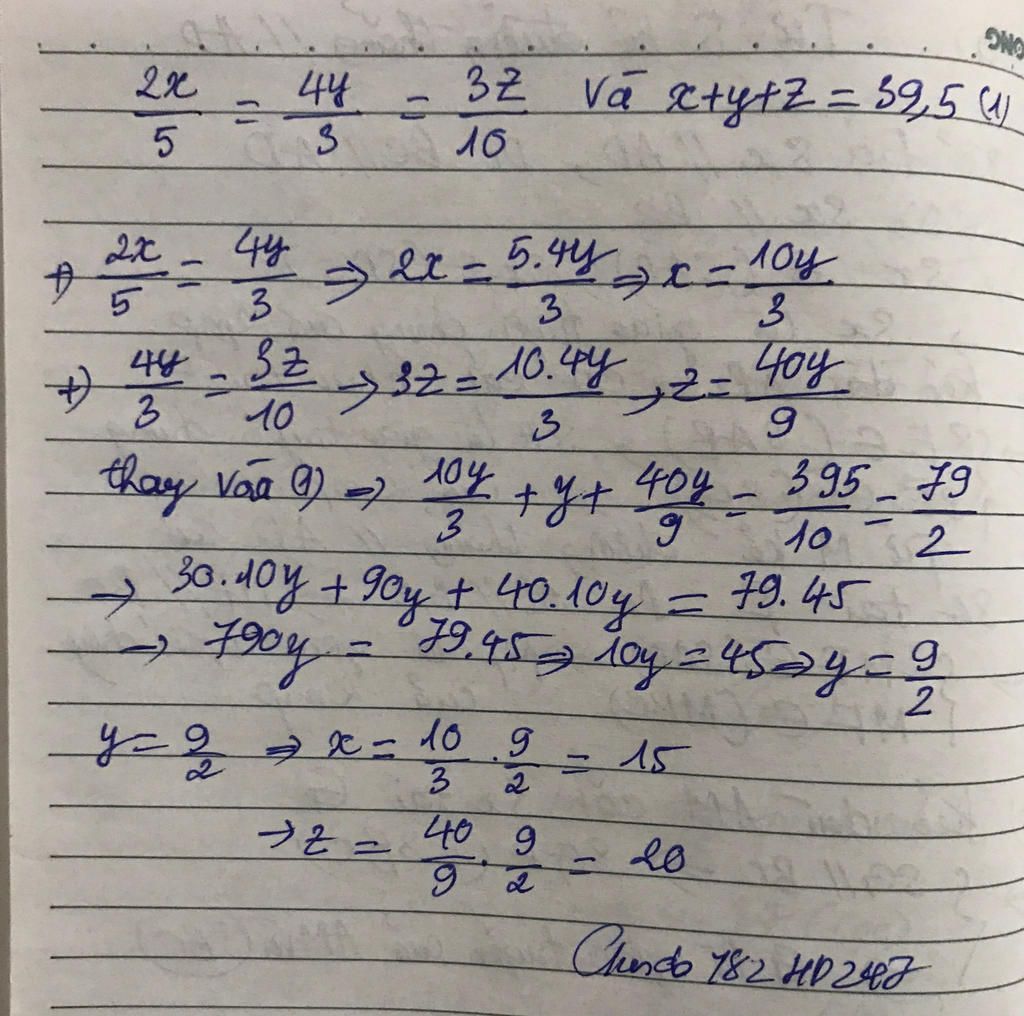 ONG
2x/5 = 4y/3 = 3z/10 và x+y+z = 39,5 (1)
+) 2x/5 = 4y/3 => 2x = 5.4y/3 => x = 10y/3
+) 4y/3 = 3z/10 -> 3z = 10.4y/3 -> z = 40y/9
thay vào (1) => 10y/3 + y + 40y/9 = 395/10 = 79/2
-> 30.10y + 90y + 40.10y = 79.45
-> 790y = 79.45 => 10y = 45 => y = 9/2
y = 9/2 => x = 10/3 . 9/2 = 15
-> z = 40/9 . 9/2 = 20